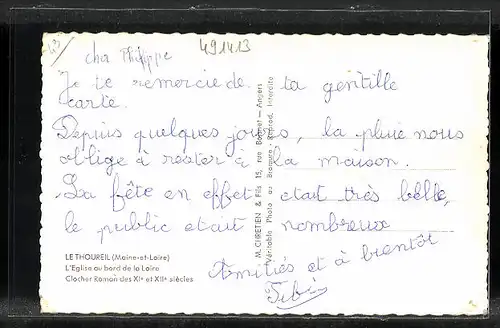 49
491413
cher Philippe
Je te remercie de ta gentille
carte.
Depuis quelques jours, la pluie nous
oblige à rester à la maison.
La fête en effet etait très belle,
le public etait nombreux
Amitiés et à bientôt
LE THOUREIL (Maine-et-Loire)
L'Eglise au bord de la Loire
Clocher Roman des XIe et XIIe siècles
M. CHRETIEN & Fils 15, rue - Angers
Véritable Photo - au Bromure - Reprod. Interdite